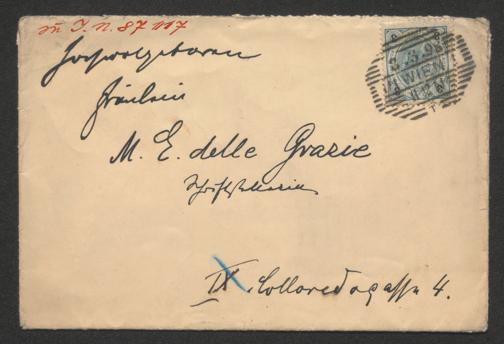 zu I. N. 87 117
Hochwolgeboren
Fräulein
M. E. delle Grazie
Schriftstellerin
IX. Colloredogasse 4.
WIEN